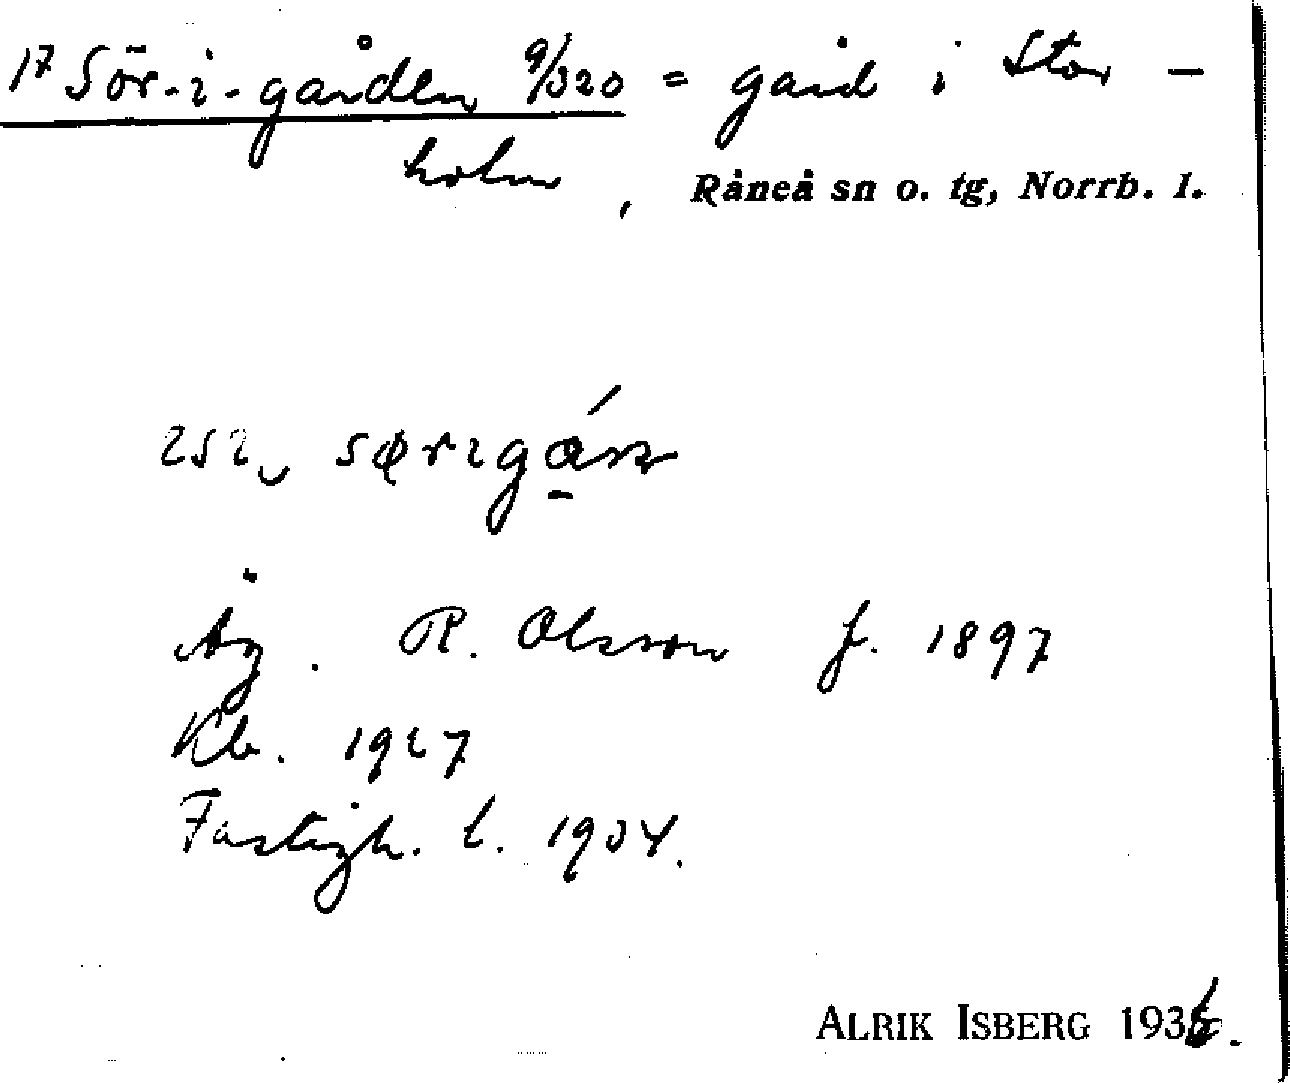 17 Sör-i-gården 9/320 = gård i Stor-
holm, Råneå sn o. tg, Norrb. l.
särigá̱
Äg. R. Olsson f. 1897
Kb. 1927
Fastigh. l. 1934.
ALRIK ISBERG 1936.